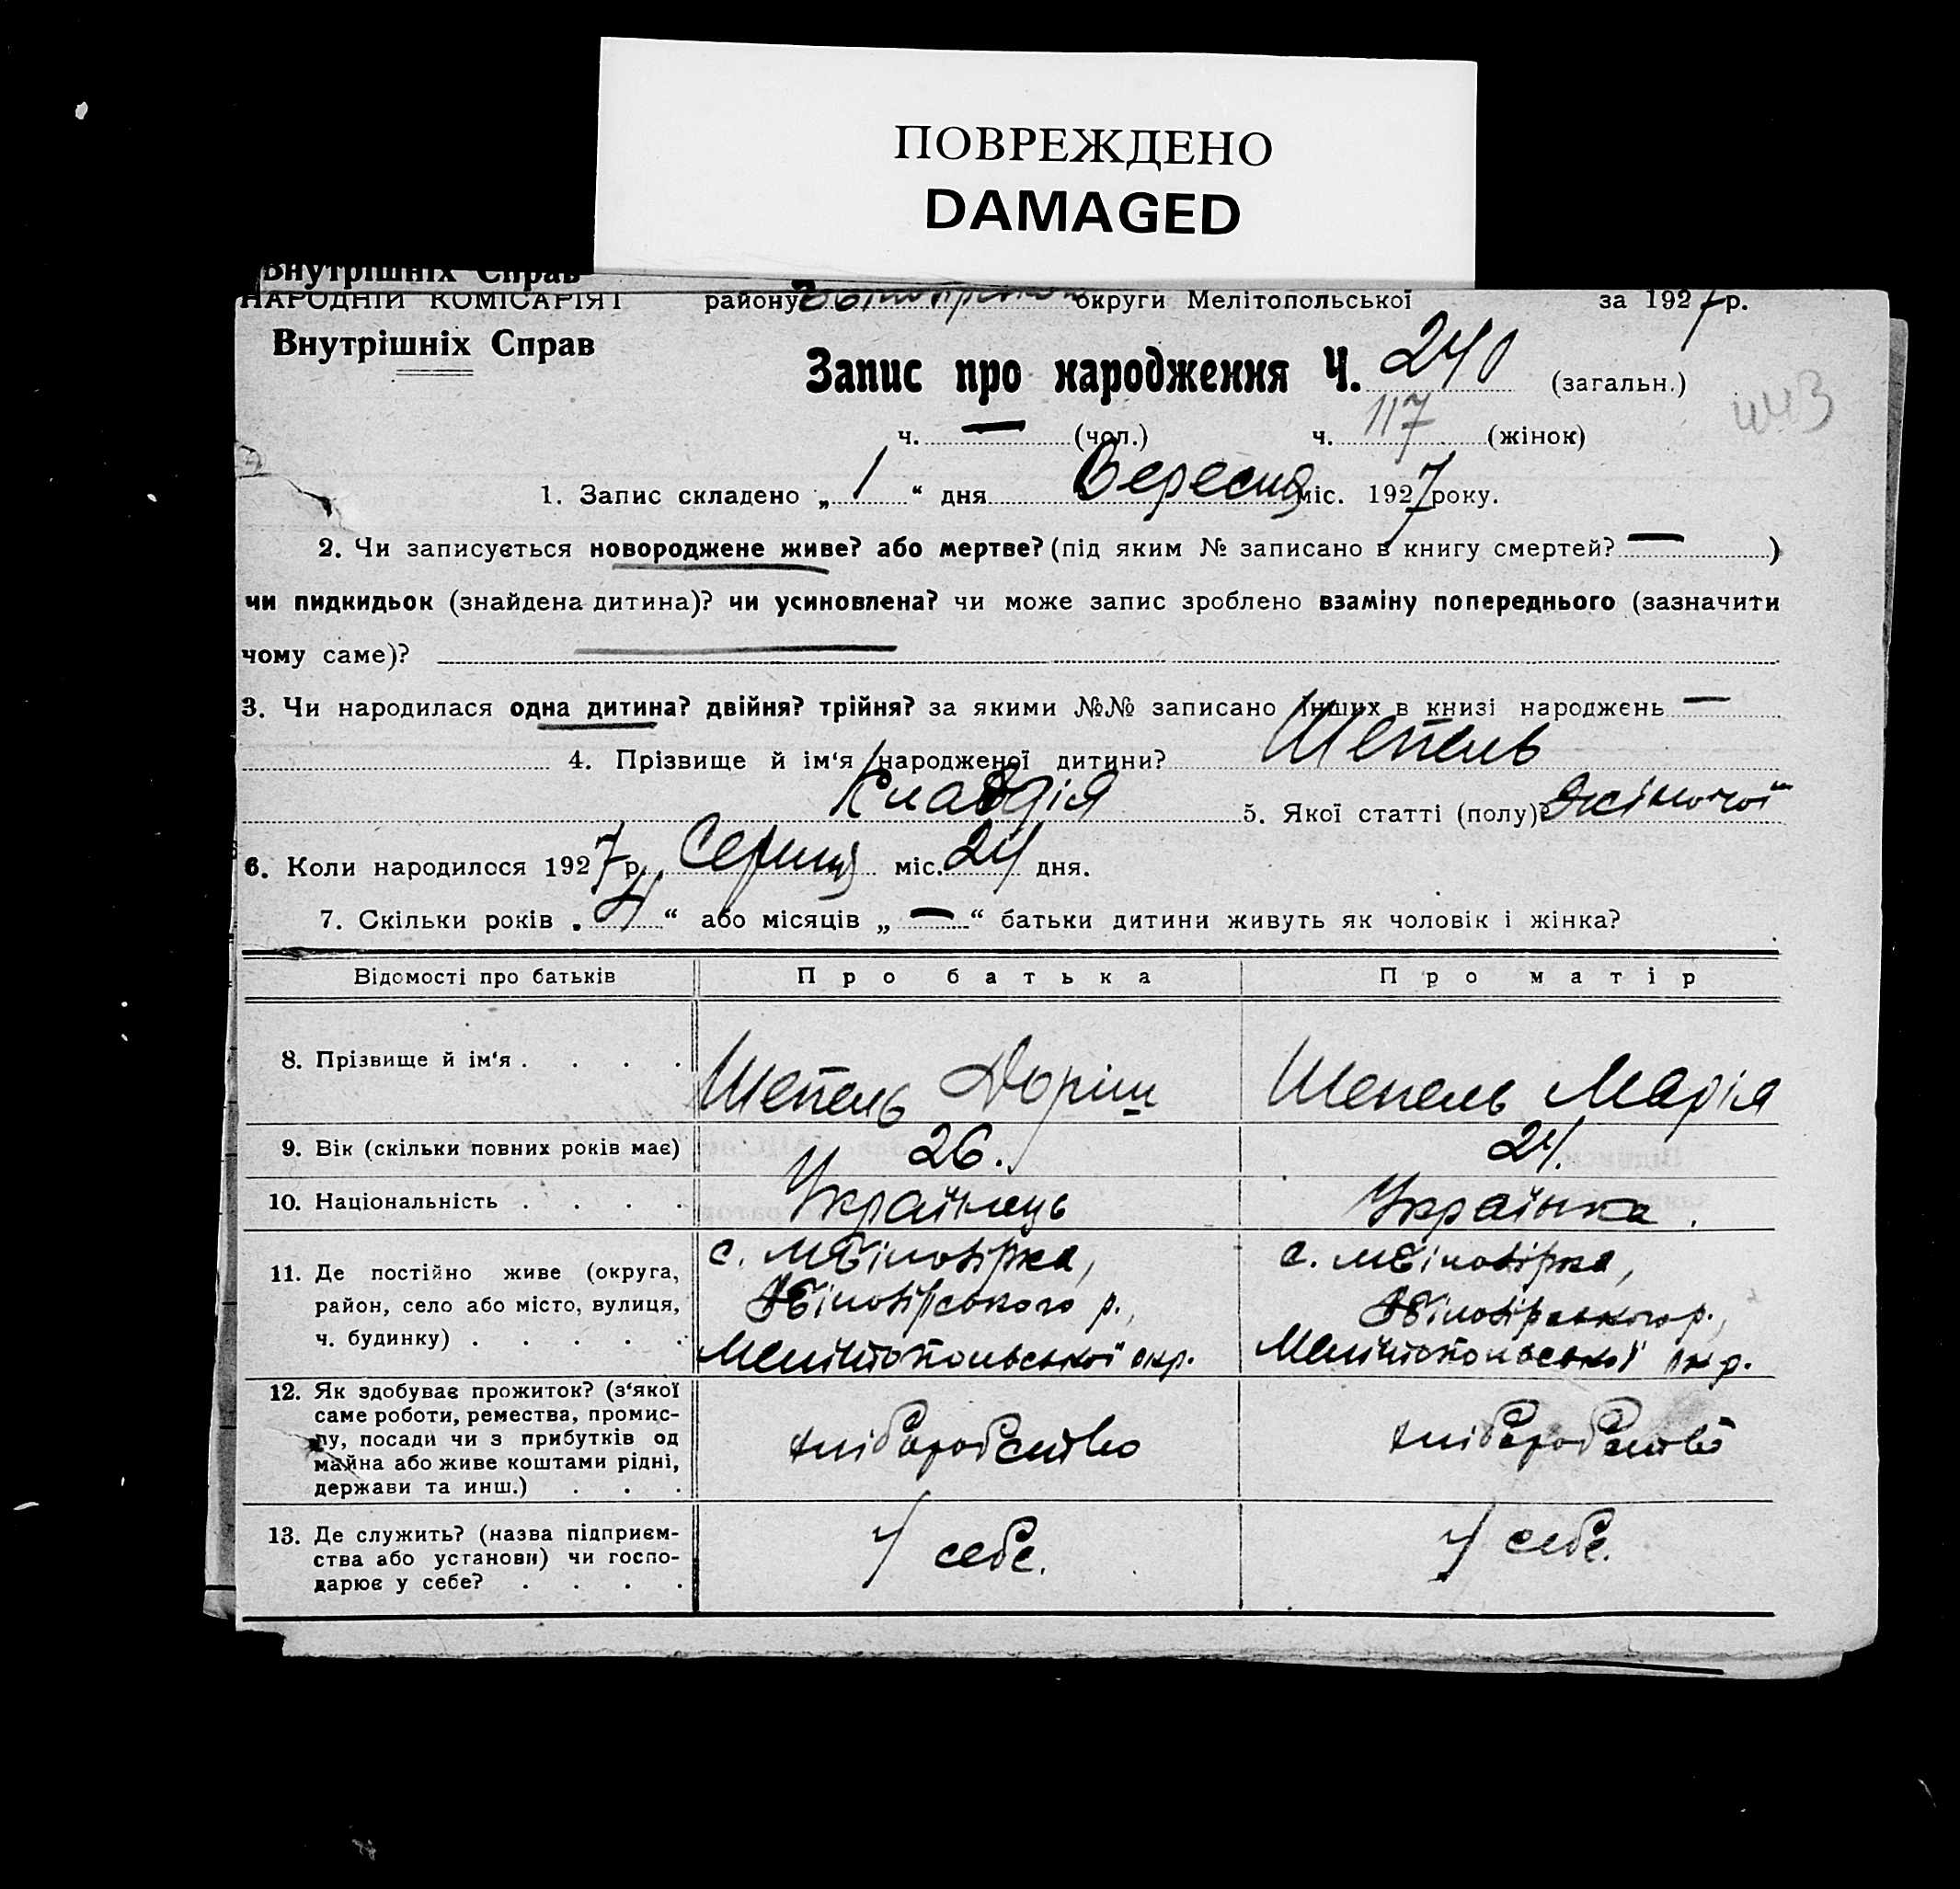 ПОВРЕЖДЕНО
DAMAGED
Внутрішніх Справ
НАРОДНІЙ КОМІСАРІЯТ району округи Мелітопольської за 1927 р.
Внутрішніх Справ
Запис про народження Ч. 240 (загальн.)
ч. — (чол.) ч. 117 (жінок)
1. Запис складено „ 1 “ дня Вересня міс. 1927 року.
2. Чи записується новороджене живе? або мертве? (під яким № записано в книгу смертей? — )
чи пидкидьок (знайдена дитина)? чи усиновлена? чи може запис зроблено взаміну попереднього (зазначити
чому саме)? —
3. Чи народилася одна дитина? двійня? трійня? за якими №№ записано інших в книзі народжень —
4. Прізвище й ім‘я народженої дитини? Шепель
Клавдія 5. Якої статті (полу)? жіночої
6. Коли народилося 1927 р. Серпня міс. 24 дня.
7. Скільки років „ 4 “ або місяців „ — “ батьки дитини живуть як чоловік і жінка?
Відомості про батьків Про батька Про матір
8. Прізвище й ім‘я . . . . Шепель Шепель Марія
9. Вік (скільки повних років має) 26. 24.
10. Національність . . . . Українець Українка.
11. Де постійно живе (округа, с. мБілозірка, с. мБілозірка,
район, село або місто, вулиця, Білозірського р., Білозірського р.,
ч. будинку) . . . . . Мелітопольської окр. Мелітопольської окр.
12. Як здобуває прожиток? (з‘якої
саме роботи, ремества, промис-
лу, посади чи з прибутків од хліборобство хліборобство
майна або живе коштами рідні,
держави та инш.) . . .
13. Де служить? (назва підприєм-
ства або установи) чи госпо- У себе. У себе.
дарює у себе? . . . .